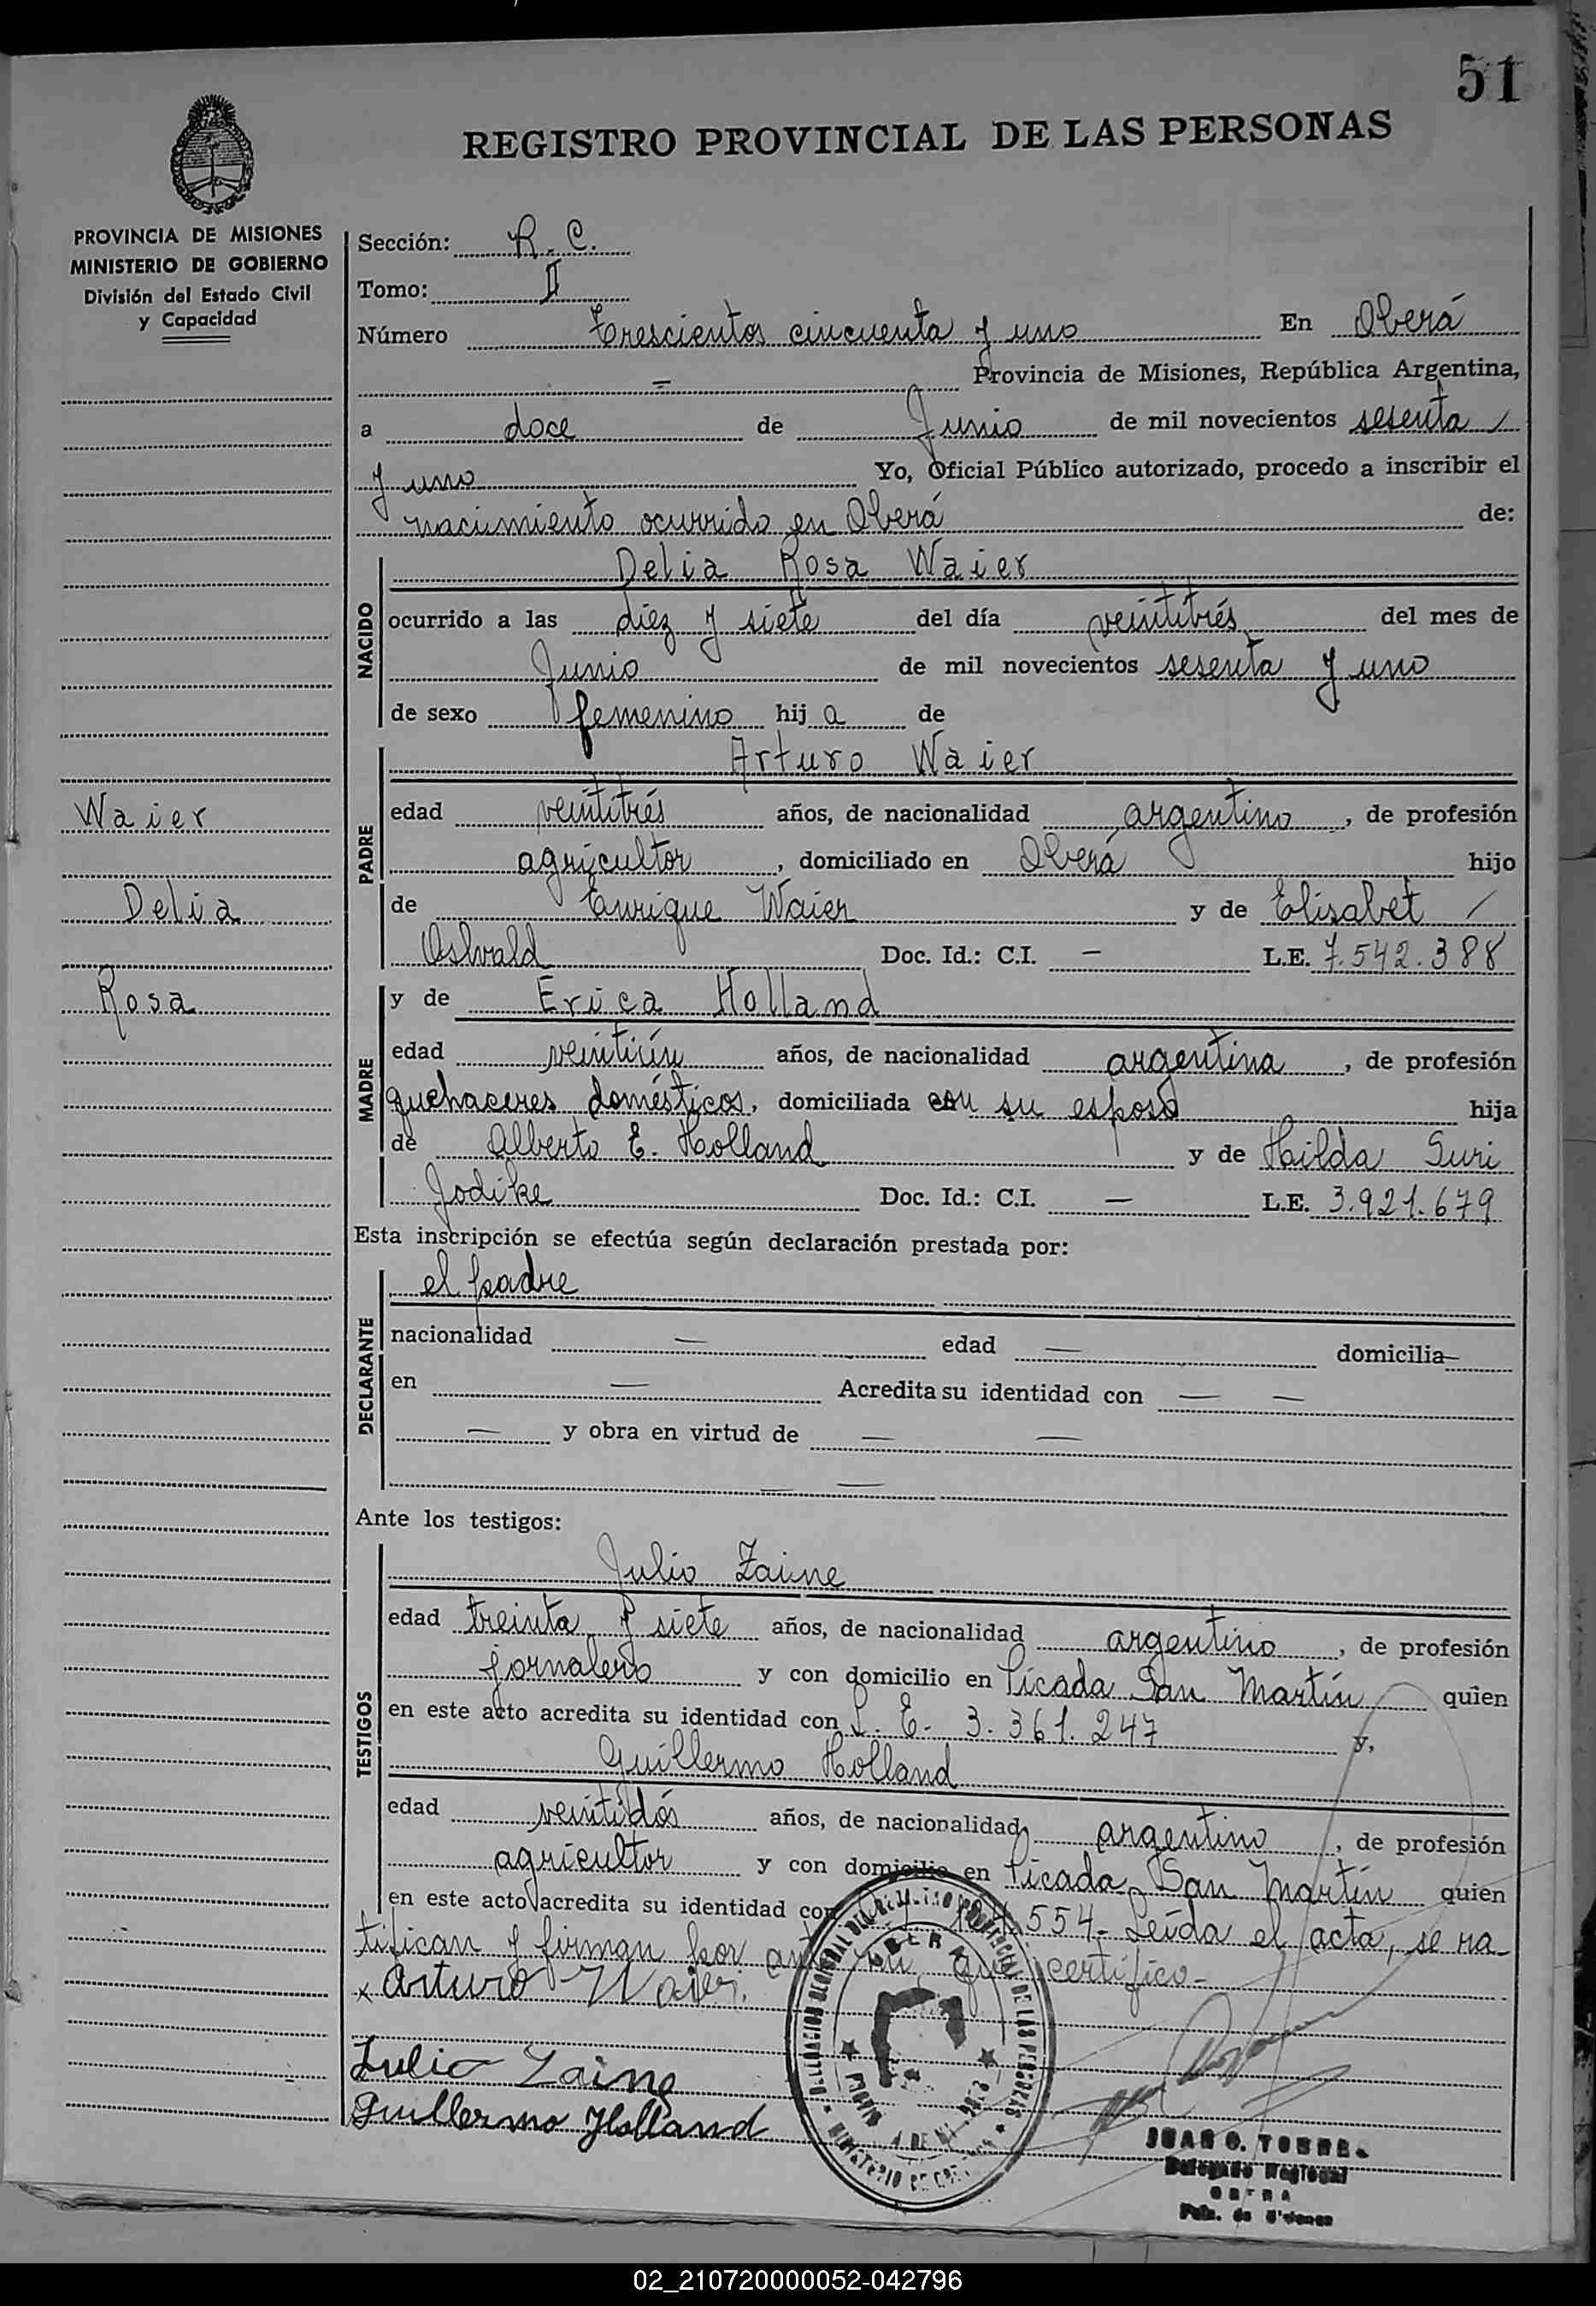 51
REGISTRO PROVINCIAL DE LAS PERSONAS
PROVINCIA DE MISIONES
MINISTERIO DE GOBIERNO
División del Estado Civil
y Capacidad
Sección: R. C.
Tomo: II
Número Trescientos cincuenta y uno En Oberá
— Provincia de Misiones, República Argentina,
a doce de Junio de mil novecientos sesenta /
y uno Yo, Oficial Público autorizado, procedo a inscribir el
nacimiento ocurrido en Oberá de:
NACIDO
Delia Rosa Waier
ocurrido a las diez y siete del día veintitrés del mes de
Junio de mil novecientos sesenta y uno
de sexo femenino hij a de
PADRE
Arturo Waier
edad veintitrés años, de nacionalidad argentino, de profesión
agricultor, domiciliado en Oberá hijo
de Enrique Waier y de Elisabet /
Oswald Doc. Id.: C.I. — L.E. 7.542.388
MADRE
y de Erica Holland
edad veintiún años, de nacionalidad argentina, de profesión
quehaceres domésticos, domiciliada con su esposo hija
de Alberto E. Holland y de Hilda Suri
Jodike Doc. Id.: C.I. — L.E. 3.921.679
Waier
Delia
Rosa
Esta inscripción se efectúa según declaración prestada por:
DECLARANTE
el padre
nacionalidad — edad — domicilia—
en — Acredita su identidad con — —
— y obra en virtud de — —
— —
Ante los testigos:
TESTIGOS
Julio Zaine
edad treinta y siete años, de nacionalidad argentino, de profesión
jornalero y con domicilio en Picada San Martín quien
en este acto acredita su identidad con L. E. 3.361.247 y,
Guillermo Holland
edad veintidós años, de nacionalidad argentino, de profesión
agricultor y con domicilio en Picada San Martín quien
en este acto acredita su identidad con 554- Leída el acta, se ra-
tifican y firman por ante mí, que certifico-
x Arturo Waier.
Julio Zaine
Guillermo Holland
DELEGACION REGIONAL DEL REGISTRO PROVINCIAL DE LAS PERSONAS
OBERA
JUAN O. TORRE
Delegado Regional
02_210720000052-042796